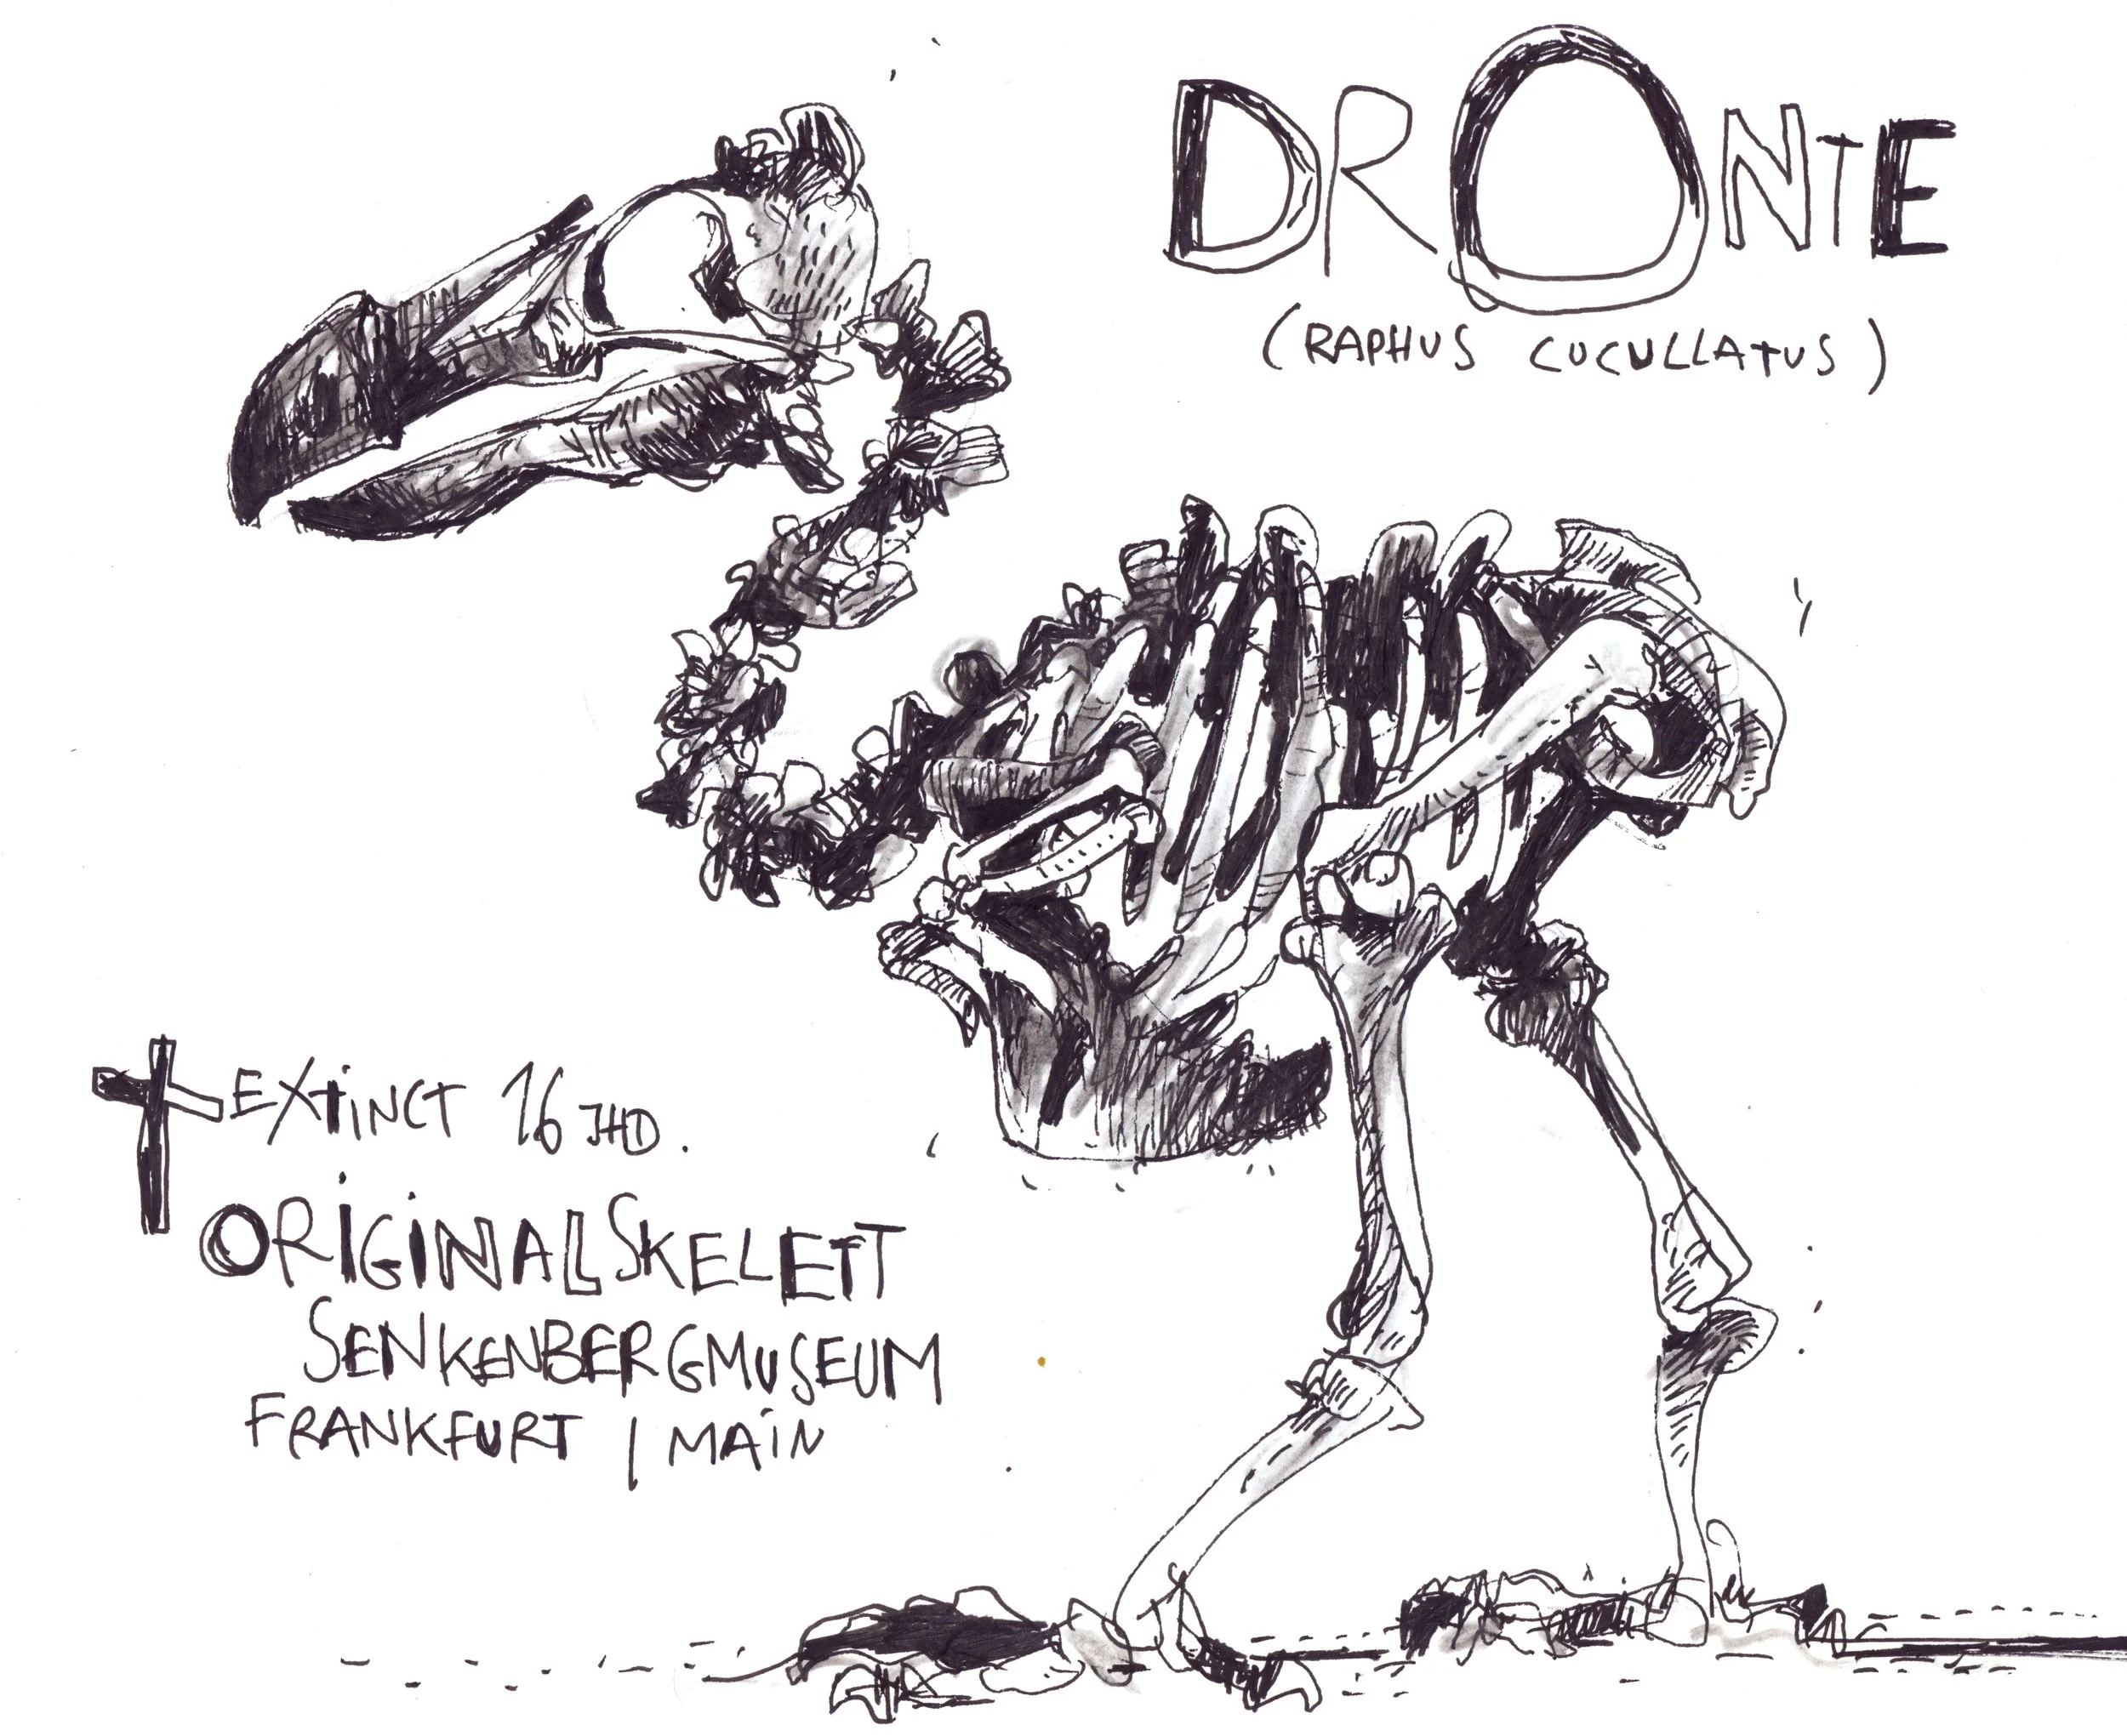 DRONTE
(RAPHUS CUCULLATUS)
EXTINCT 16 JHD.
ORIGINALSKELETT
SENKENBERGMUSEUM
FRANKFURT / MAIN